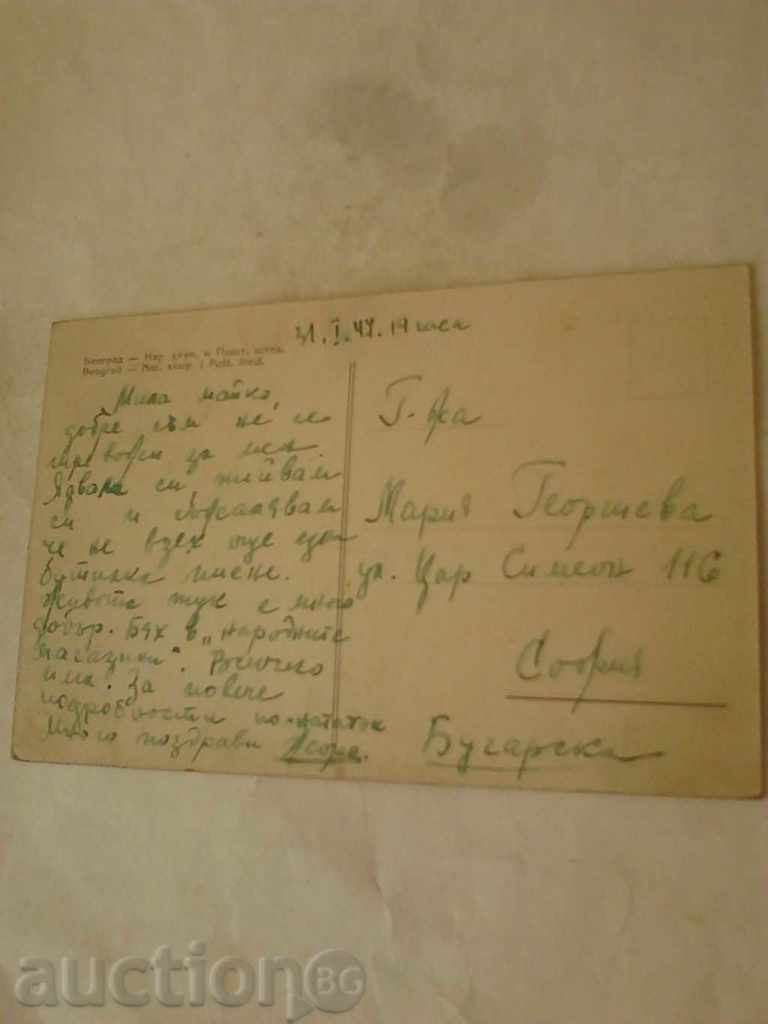 31.I.47. 19 часа
Београд — Нар. скуп. и Пошт. штед.
Beograd — Nar. skup. i Pošt. šted.
Мила майко,
добре съм не се
тревожи за мен.
Ядвам си пийвам
си и съжалявам
че не взех още една
бутилка
Живота тук е много
добър. Бях в „народните
магазини". Всичко
има. За повече
подробности по-нататък
Много поздрави Жоре.
Г-жа
Мария Георгиева
ул. Цар Симеон 116
София
Бугарска
auctionBG